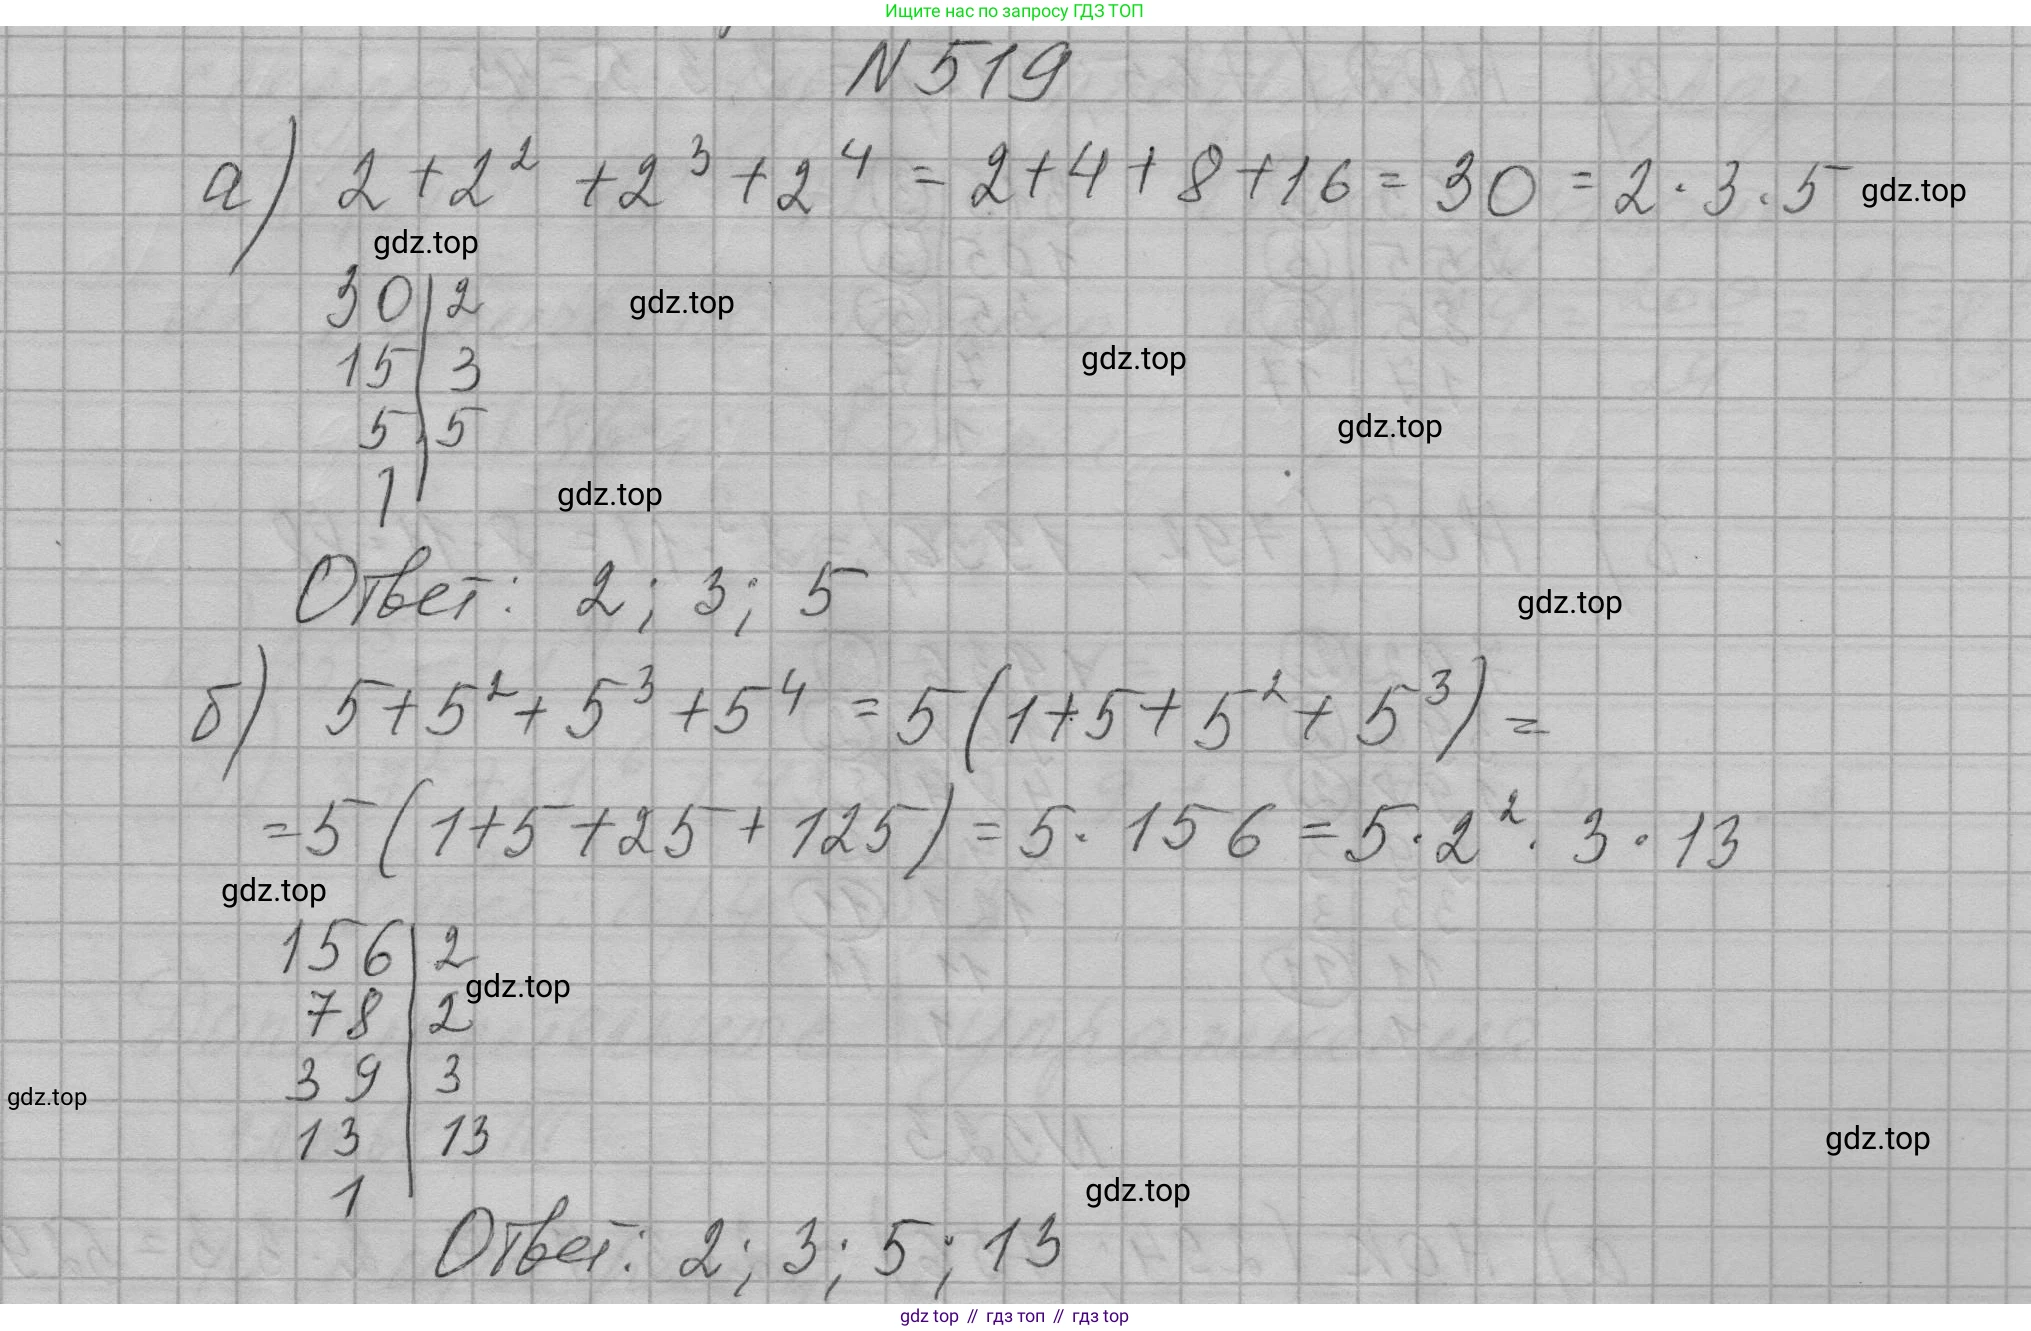 Ищите нас по запросу ГДЗ ТОП
N 519
а) 2 + 2² + 2³ + 2⁴ = 2 + 4 + 8 + 16 = 30 = 2 · 3 · 5 gdz.top
gdz.top
30 | 2 gdz.top
15 | 3 gdz.top
5 | 5 gdz.top
1 | gdz.top
Ответ: 2; 3; 5 gdz.top
б) 5 + 5² + 5³ + 5⁴ = 5 (1 + 5 + 5² + 5³) =
= 5 (1 + 5 + 25 + 125) = 5 · 156 = 5 · 2² · 3 · 13
gdz.top
156 | 2
78 | 2 gdz.top
39 | 3
gdz.top
13 | 13 gdz.top
1 | gdz.top
Ответ: 2; 3; 5; 13
gdz top // гдз топ // гдз top